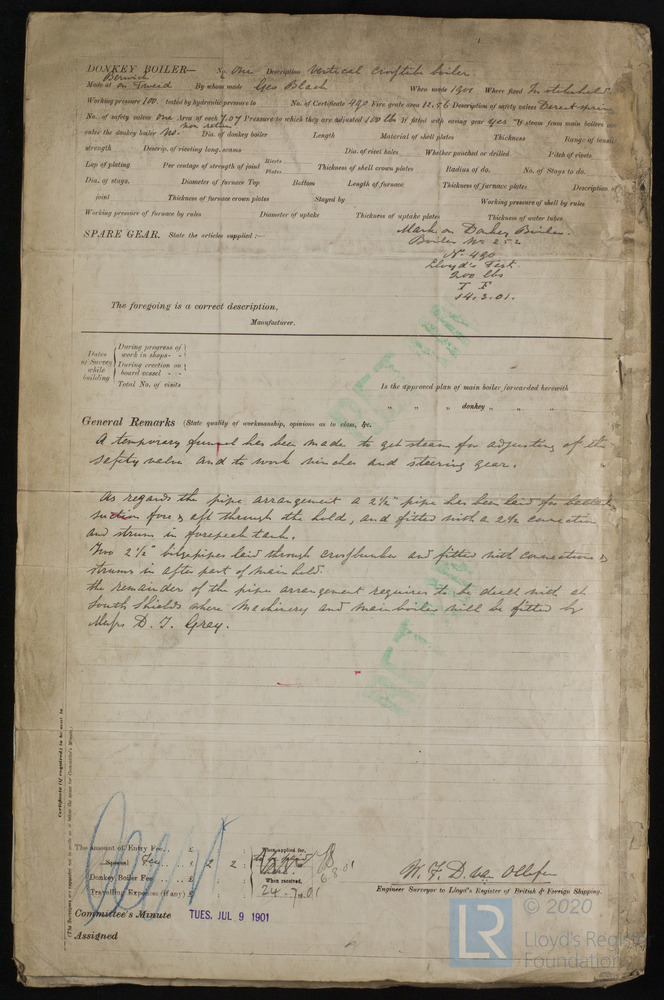 DONKEY BOILER— No. One Description Vertical Crosstube boiler.
Made at Berwick on Tweed By whom made Geo Black When made 1901 Where fixed In stokehold
Working pressure 100 tested by hydraulic pressure to No. of Certificate 490 Fire grate area 12.56 Description of safety valves Direct spring
No. of safety valves one Area of each 7.07 Pressure to which they are adjusted 100 lb If fitted with easing gear yes If steam from main boilers can
enter the donkey boiler No. non return Dia. of donkey boiler Length Material of shell plates Thickness Range of tensile
strength Descrip. of riveting long. seams Dia. of rivet holes Whether punched or drilled Pitch of rivets
Lap of plating Per centage of strength of joint Rivets Plates Thickness of shell crown plates Radius of do. No. of Stays to do.
Dia. of stays. Diameter of furnace Top Bottom Length of furnace Thickness of furnace plates Description of
joint Thickness of furnace crown plates Stayed by Working pressure of shell by rules
Working pressure of furnace by rules Diameter of uptake Thickness of uptake plates Thickness of water tubes
SPARE GEAR. State the articles supplied :—
Mark on Donkey Boiler.
Boiler No 252
No 490
Lloyd's Test
200 lbs
T F
14.3.01.
The foregoing is a correct description,
Manufacturer.
Dates of Survey while building
During progress of work in shops - -
During erection on board vessel - - -
Total No. of visits
Is the approved plan of main boiler forwarded herewith
" " " donkey " " "
General Remarks (State quality of workmanship, opinions as to class, &c.
A temporary funnel has been made to get steam for adjusting of the
safety valve and to work winches and steering gear.
As regards the pipe arrangement a 2½" pipe has been laid for ballast
suction fore & aft through the hold, and fitted with a 2½ connection
and strum in forepeak tank.
Two 2½" bilgepipes laid through crossbunker and fitted with connections &
strums in after part of main hold.
The remainder of the pipe arrangement requires to be dealt with at
South Shields where Machinery and mainboiler will be fitted by
Messrs D. T. Grey.
RETAIN
RETAIN
Certificate (if required) to be sent to
The amount of Entry Fee . . £ : :
Special Fee . . . £ 2 : 2 :
Donkey Boiler Fee . . . £ : :
Travelling Expenses (if any) £ : :
When applied for,
6.8.01
When received,
24.7.01
W. F. D. van Ollefen
Engineer Surveyor to Lloyd's Register of British & Foreign Shipping.
Committee's Minute TUES, JUL 9 1901
Assigned
LR
© 2020
Lloyd's Register
Foundation